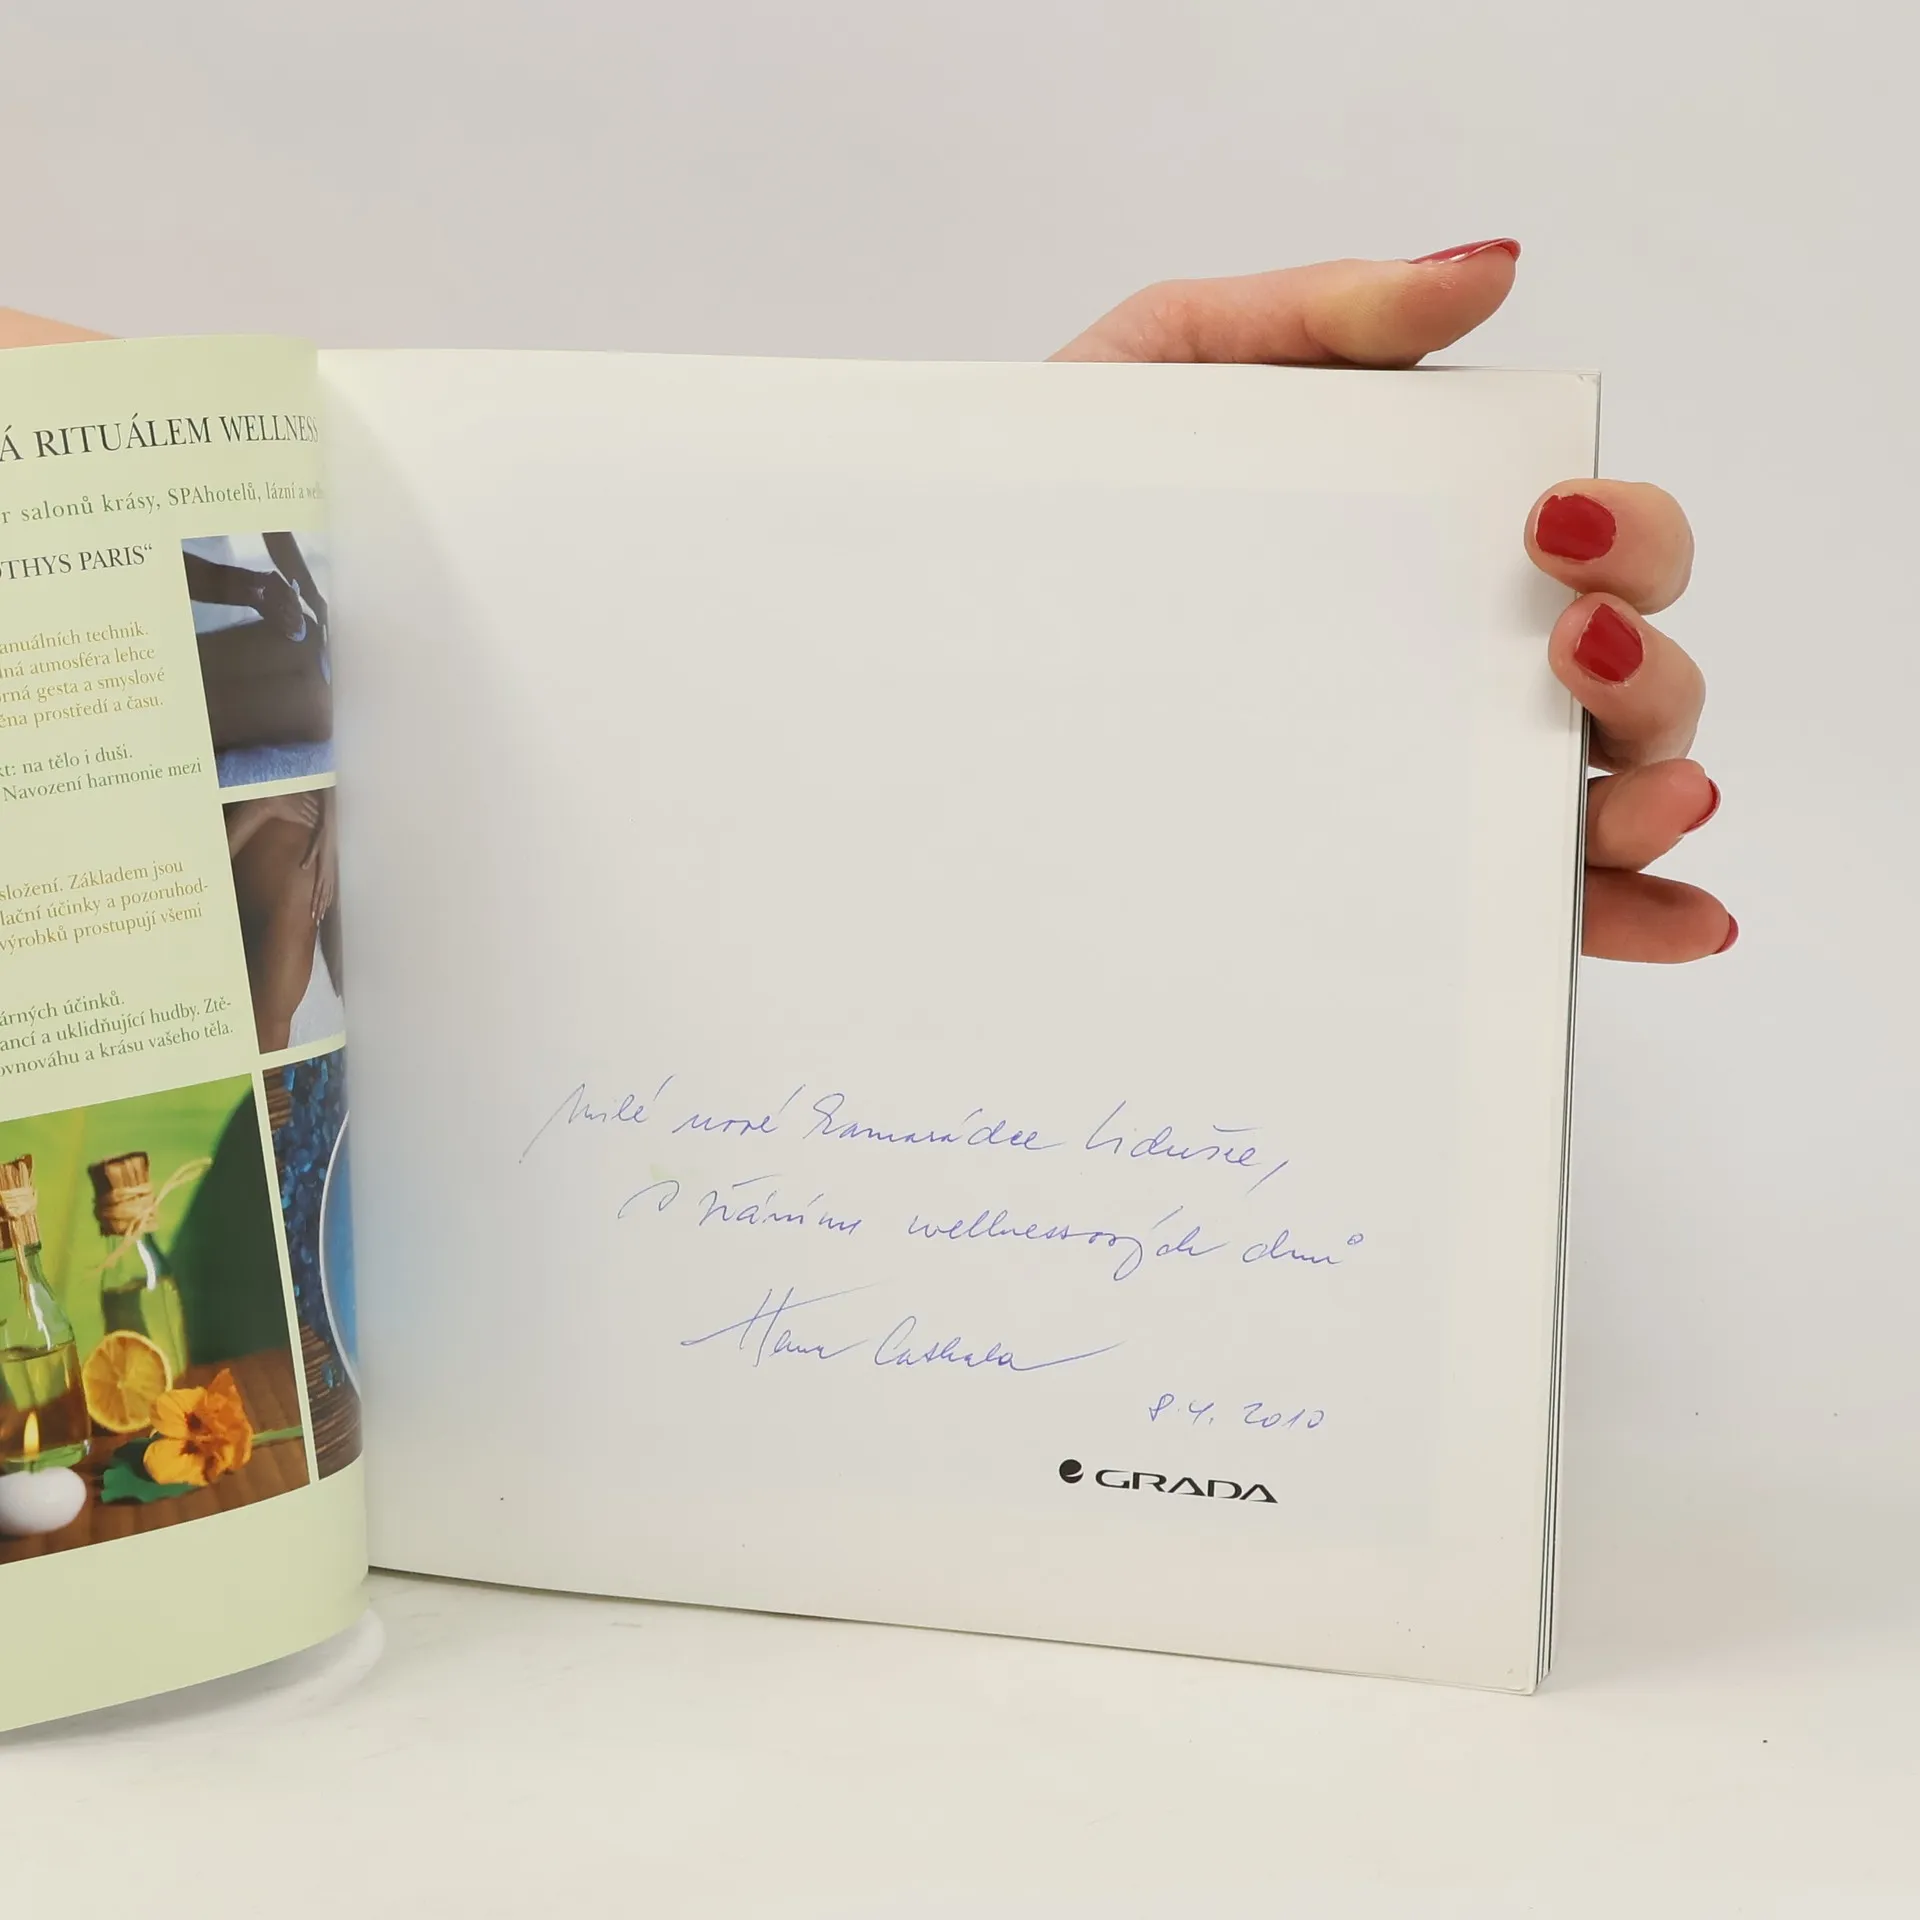 Á RITUÁLEM WELLNESS
r salonů krásy, SPAhotelů, lázní a
OTHYS PARIS“
anuálních technik.
lná atmosféra lehce
orná gesta a smyslové
ěna prostředí a času.
kt: na tělo i duši.
Navození harmonie mezi
složení. Základem jsou
lační účinky a pozoruhod-
výrobků prostupují všemi
árných účinků.
ancí a uklidňující hudby. Ztě-
ovnováhu a krásu vašeho těla.
Milé nové kamarádce Lidušce,
s přáním wellnessových dnů
Hana Cathala
8.4. 2010
GRADA